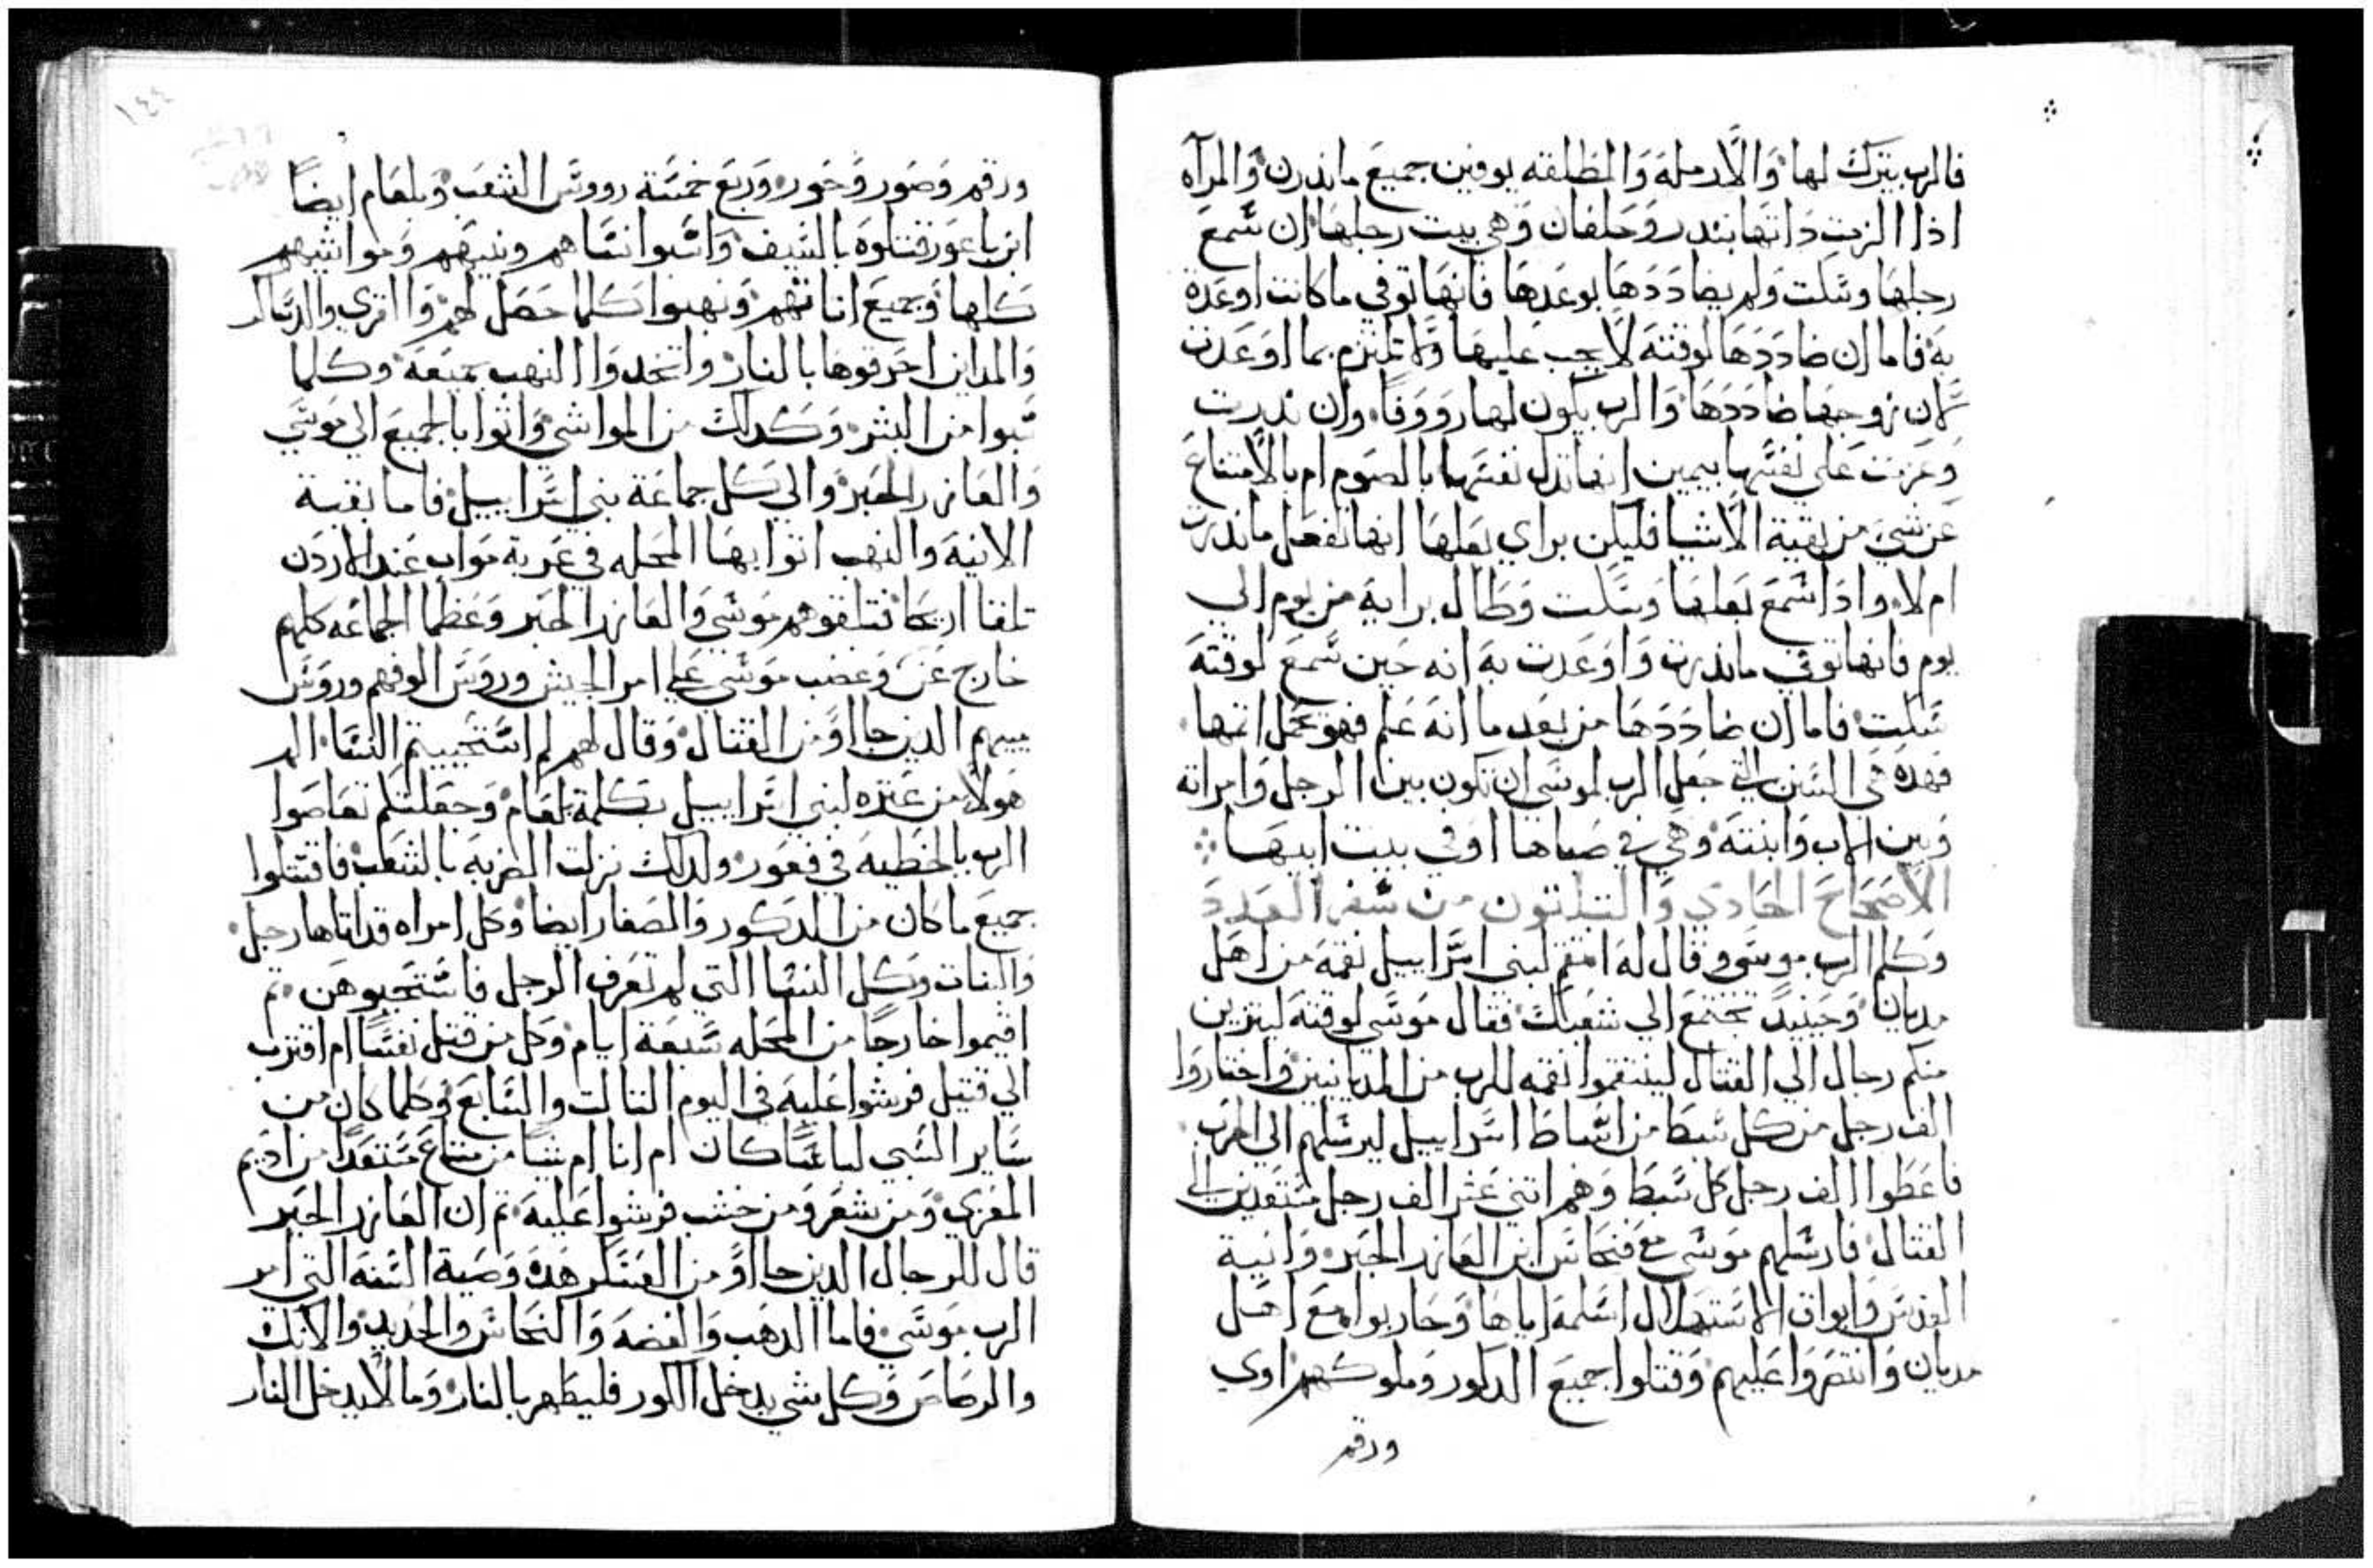 فالرب يترك لها والارمله والمطلقه يوفين جميع ما نذرن والمرآه
اذا الزمت داتها بنذر وحلفان وهي بيت رجلها ان سمع
رجلها وسكت ولم يضاددها بوعدها فانها توفي ما كانت اوعدة
به فاما ان ضاددها لوقته لا يجب عليها ولا تلتزم بما اوعدت
لان زوجها ضاددها والرب يكون لها رووفا وان نذرت
وعزمت على نفسها بيمين انها تذل نفسها بالصوم ام بالامتناع
عن شي من بقية الاشيا فليكن براي بعلها انها تفعل ما نذرت
ام لا واذا سمع بعلها وسكت وطال برايه من يوم الي
يوم فانها توفي ما نذرت واوعدت به انه حين سمع لوقته
سكت فاما ان ضاددها من بعد ما انه علم فهو يحمل اتمها
فهده هي السنن التي جعل الرب لموسى ان تكون بين الرجل وامراته
وبين الاب وابنته وهي في صباها او في بيت ابيها
الاصحاح الحادي والتلاتون من سفر العدد
وكلم الرب موسى وقال له انتقم لبني اسراييل نقمه من اهل
مديان وحينيد تجتمع الي شعبك فقال موسي لوقته ليتزين
منكم رجال الي القتال لينتقموا نقمه للرب من المديانيين واختاروا
الف رجل من كل سبط من اسباط اسراييل ليرسلهم الى الحرب
فاعطوا الف رجل كل سبط وهم اتني عشر الف رجل مستعدين الى
القتال فارسلهم موسى مع فنحاس ابن العازر الحبر وانية
القدس وابواق الاستهلال اسلمه اياها وحاربوا مع اهل
مديان وانتصروا عليهم وقتلوا جميع الدكور وملوكهم اوي
ورقم
١٤٤
ورقم وصور وحور وربع خمسة رووس الشعب وبلعام ايضا
ابن باعور قتلوه بالسيف واسبوا نساهم وبنيهم ومواشيهم
كلها وجميع اناتهم ونهبوا كلما حصل لهم والقري والدساكر
والمداين احرقوها بالنار واتخدوا النهب جميعه وكلما
سبوا من البشر وكدلك من المواشي واتوا بالجميع الي موسي
والعازر الحبر والي كل جماعة بني اسراييل فاما بقية
الانيه والنهب اتوا بها المحله في عربة مواب عند الاردن
تلقا اريحا فتلقوهم موسي والعازر الحبر وعظما الجماعه كلهم
خارج عن وغضب موسي علي امرا الجيش وروس الوفهم وروس
مييهم الدين جااو من القتال وقال لهم لم استحييتم النسا اليس
هولا من عتره لبني اسراييل بكلمة بلعام وجعلنكم تعاصوا
الرب بالخطيه في فعور ولدلك نزلت الضربه بالشعب فاقتلوا
جميع ما كان من الدكور والصغار ايضا وكل امراه قد اتاها رجل
والبنات وكل النسا التي لم تعرف الرجل فاستحيوهن تم
اقيموا خارجا من المحله سبعة ايام وكل من قتل نفسا ام اقترب
الي قتيل فرشوا عليه في اليوم التالت والسابع وكلما كان من
ساير السبي لباسا كان ام انا ام شيا من متاع مستعدا من اديم
المعزي ومن شعر ومن خشب فرشوا عليه تم ان العازر الحبر
قال للرجال الدين جااو من العسكر هده وصية السنه التي امر
الرب موسي فاما الدهب والفضه والنحاس والحديد والانك
والرصاص وكل شي يدخل الكور فليطهر بالنار وما لا يدخل النار